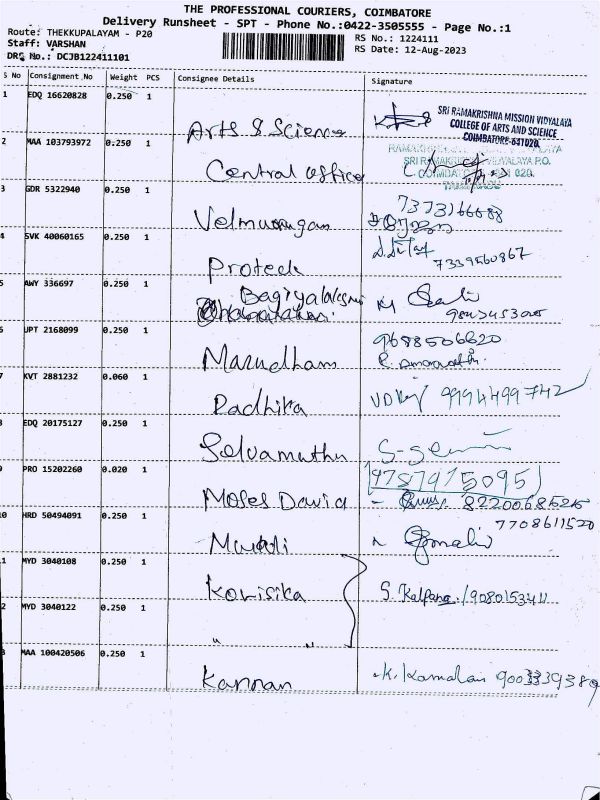 THE PROFESSIONAL COURIERS, COIMBATORE
Delivery Runsheet - SPT - Phone No.:0422-3505555 - Page No.:1
Route: THEKKUPALAYAM - P20
RS No.: 1224111
Staff: VARSHAN
RS Date: 12-Aug-2023
DRS No.: DCJB122411101
S No Consignment No Weight PCS Consignee Details Signature
1 EDQ 16620828 0.250 1
Arts & Science
SRI RAMAKRISHNA MISSION VIDYALAYA
COLLEGE OF ARTS AND SCIENCE
COIMBATORE-641020.
2 MAA 103793972 0.250 1
Central office
3 GDR 5322940 0.250 1
Velmurugan 7373166688
4 SVK 40060165 0.250 1
Protech 7339560867
5 AWY 336697 0.250 1
Bagiyalakshmi
6 JPT 2168099 0.250 1
Marudham 9688506620
7 KVT 2881232 0.060 1
Radhika 9994499742
8 EDQ 20175127 0.250 1
Selvamuthu
9 PRO 15202260 0.020 1
Moses David 8220068525
10 HRD 50494091 0.250 1
7708611520
11 MYD 3040108 0.250 1
Korisika S. Kalpana /9080153411
12 MYD 3040122 0.250 1
" "
13 MAA 100420506 0.250 1
Kannan K. Kamalan 9003339389